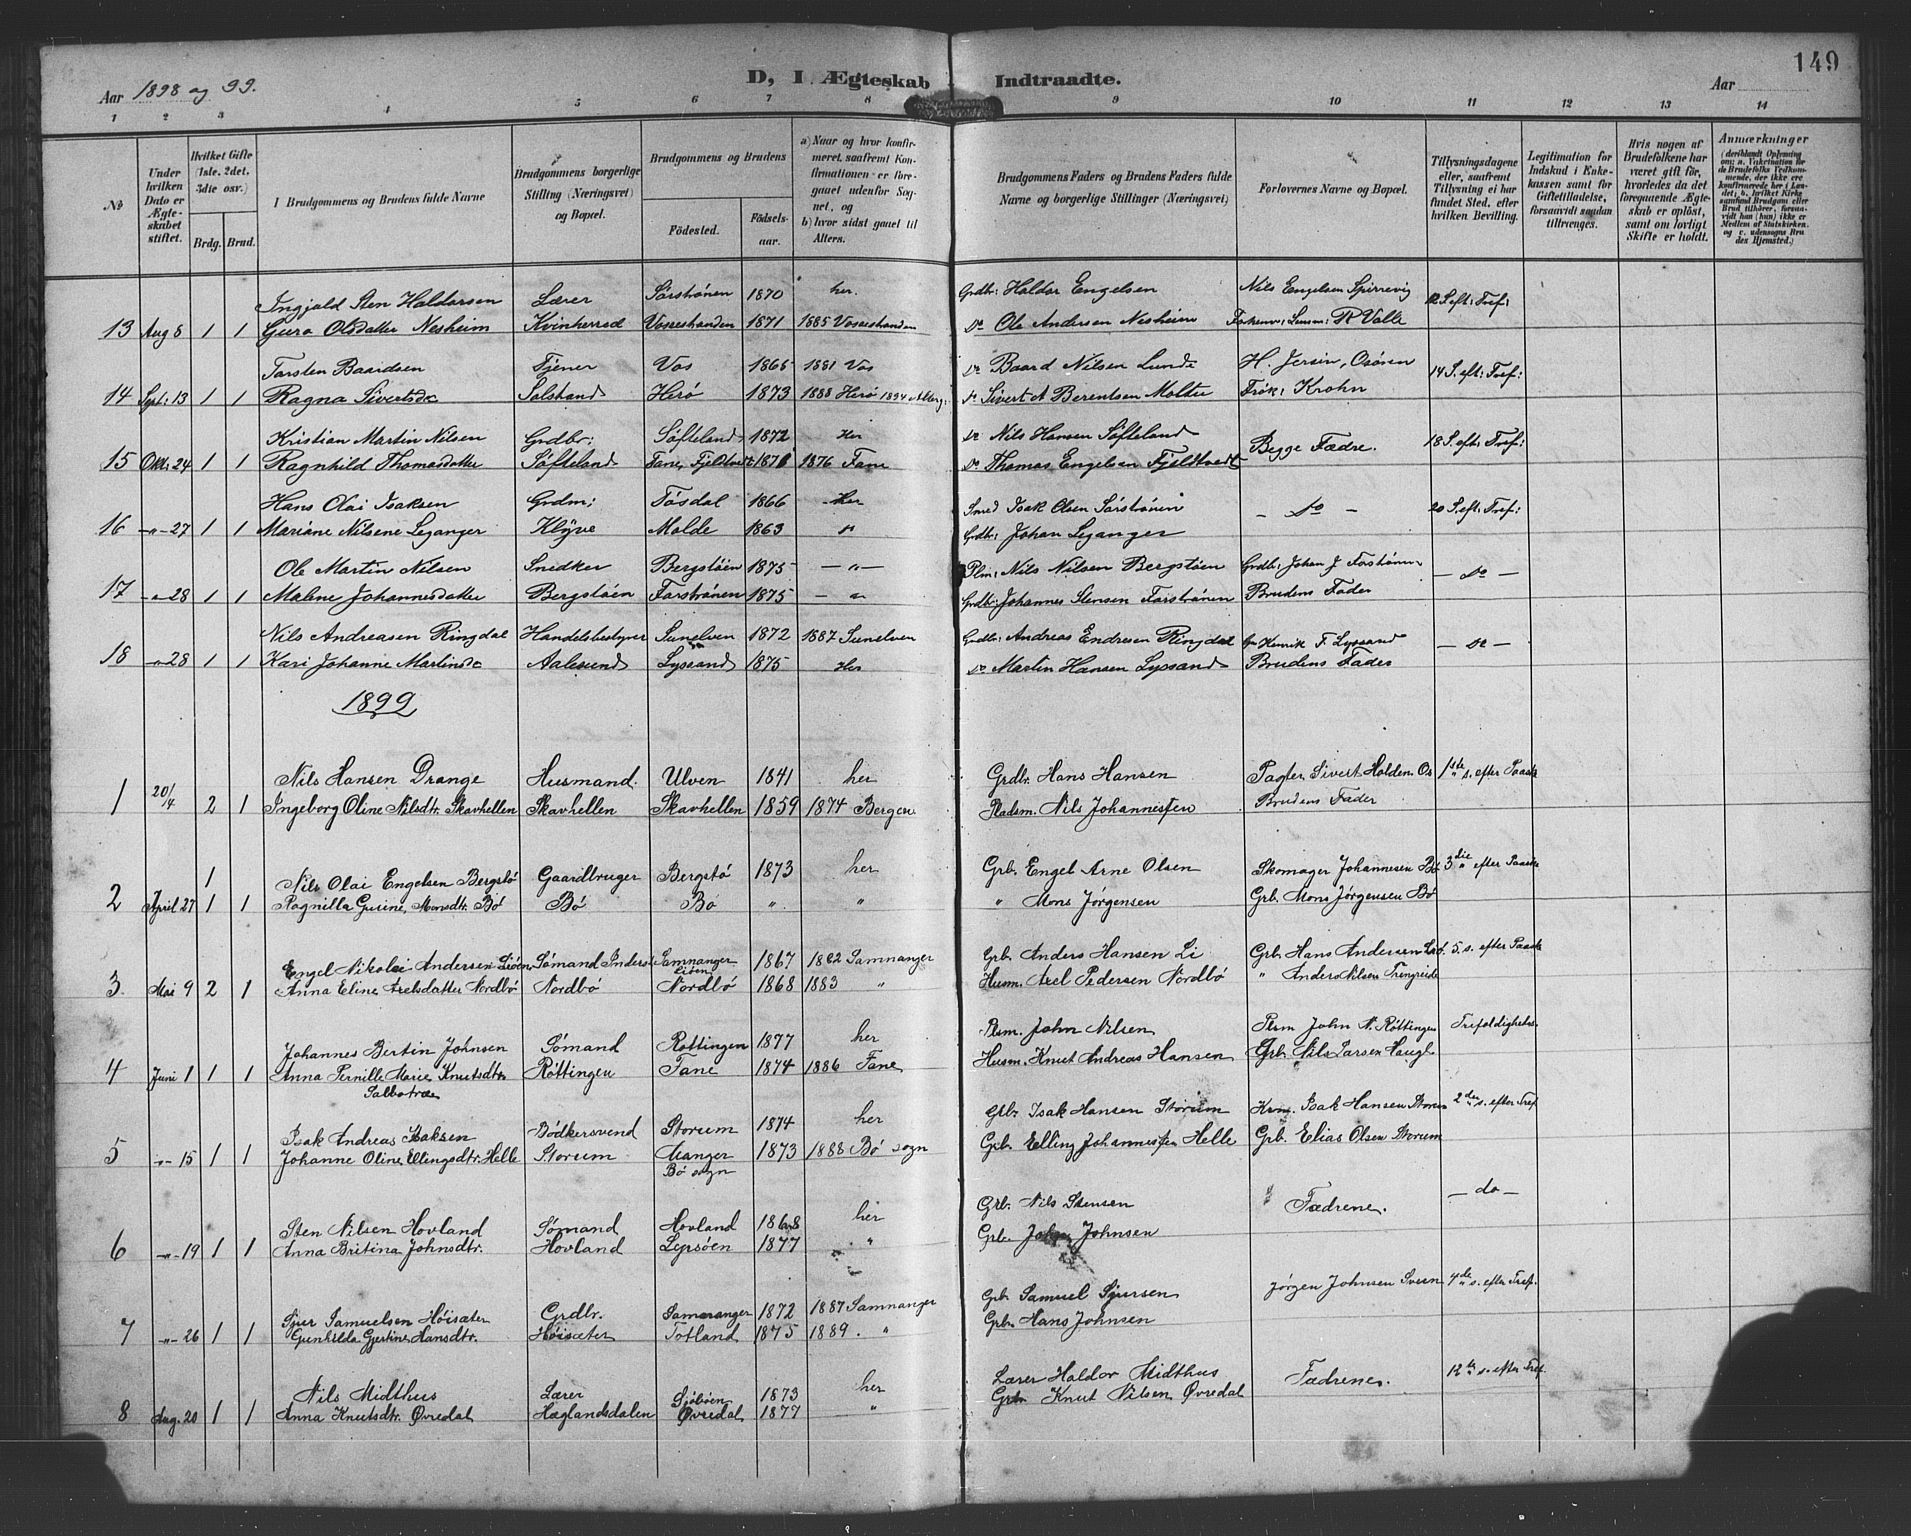 149
D, I Ægteskab Indtraadte.
Aar 1898 og 99. Aar
1 2 3 4 5 6 7 8 9 10 11 12 13 14
No
Under hvilken Dato er Ægteskabet stiftet.
Hvilket Gifte (1ste, 2det, 3die osv.) Brdg. Brud.
I Brudgommens og Brudens fulde Navne
Brudgommens borgerlige Stilling (Næringsvei) og Bopæl.
Brudgommens og Brudens Födested. Födselsaar.
a) Naar og hvor konfirmeret, saafremt Konfirmationen er foregaaet udenfor Sognet, og b) hvor sidst gaaet til Alters.
Brudgommens Faders og Brudens Faders fulde Navne og borgerlige Stillinger (Næringsvei)
Forlovernes Navne og Bopæl.
Tillysningsdagene eller, saafremt Tillysning ei har fundet Sted, efter hvilken Bevilling.
Legitimation for Indskud i Enkekassen samt for Giftetilladelse, forsaavidt saadan tiltrænges.
Hvis nogen af Brudefolkene har været gift för, hvorledes da det foregaaende Ægteskab er oplöst, samt om lovligt Skifte er holdt.
Anmærkninger
Ingjald Sten Haldorsen Lærer Sørstrønen 1870 her. Grdbr: Haldor Engelsen Nils Engelsen Spirrevig 12 S. eft: Tref:
13 Aug 8 1 1 Guro Olsdatter Nesheim Kvinherred Vossestranden 1871 1885 Vossestranden Do Ole Andersen Nesheim R Valle
Torsten Baardsen Tjener Vos 1865 1881 Vos Do Baard Nilsen Lunde H. Jersin, Osøren 14 S. eft: Tref:
14 Sept: 13 1 1 Ragna Sivertsdr Solstrand Herø 1873 1888 Herø 1894 Do Sivert A Berentsen Molter Frøk: Krohn
Kristian Martin Nilsen Grdbr: Søfteland 1872 Her Do Nils Hansen Søfteland Begge Fædre. 18 S. eft: Tref:
15 Okt: 24 1 1 Ragnhild Thomasdatter Søfteland Fane, Fjeldtvedt 1876 Fane Do Thomas Engelsen Fjeldtvedt
Hans Olai Isaksen Grdm: Tøsdal 1866 Her Smed Isak Olsen Sørstrønen - Do - 20 S. eft: Tref:
16 -"- 27 1 1 Mariane Nilsene Leganger Kløve Molde 1863 " Grdbr: Johan Leganger
Ole Martin Nilsen Snedker Bergstøen 1875 -"- Plm: Nils Nilsen Bergstøen Grdb: Johan J Forstrønen - Do -
17 -"- 28 1 1 Malene Johannesdatter Bergstøen Forstrønen 1875 - " Grdbr: Johannes Stensen Forstrønen Brudens Fader
Nils Andreasen Ringdal Handelsbestyrer Sunelven 1872 1887 Sunelven Grdbr: Andreas Endresen Ringdal Henrik F. Lyssand - Do -
18 -"- 28 1 1 Kari Johanne Martinsdr Aalesund Lyssand 1875 Her Do Martin Hansen Lyssand Brudens Fader
1899
Nils Hansen Drange Husmand. Ulven 1841 her Grdbr. Hans Hansen Sivert Holden Os 1ste s. efter Paaske
1 20/4 2 1 Ingeborg Oline Nilsdtr. Skavhellen Skavhellen Skavhellen 1859 1874 Bergen Pladsm. Nils Johannessen Brudens Fader
1 Nils Olai Engelsen Bergstø Gaardbruger Bergstø 1873 her Grb. Engel Arne Olsen Skomager Johannesen Bø 3die s. efter Paaske
2 April 27 1 1 Ragnilla Gurine Monsdtr. Bø Bø Bø " " " Mons Jørgensen Grb. Mons Jørgensen Bø
Engel Nikolai Andersen Liøen Sømand Samnanger Liøen 1867 1882 Samnanger Grb. Anders Hansen Li Grb. Hans Andersen 5. s. efter Paaske
3. Mai 9 2 1 Anna Eline Axelsdatter Nordbø Nordbø Nordbø 1868 1883 " Husm. Axel Pedersen Nordbø " Anders Nilsen Trengreide
Johannes Bertin Johnsen Sømand Røttingen 1877 her Plsm. John Nilsen Plsm John N. Røttingen Trefoldighets.
4 Juni 1 1 1 Anna Pernille Marie Knutsdtr. Røttingen Fane 1874 1886 Fane Husm. Knut Andreas Hansen Grb. Nils Larsen Haugl
Salbotræe
Isak Andreas Isaksen Bødkersvend Storum 1874 her Grb. Isak Hansen Storum Isak Hansen Storum 2den s. efter Tref
5 -"- 15 1 1 Johanne Oline Ellingsdtr. Helle Storum Manger Bø sogn 1873 1888 Bø sogn Grb. Elling Johannessen Helle Grb. Elias Olsen Storum
Sten Nilsen Hovland Sømand Hovland 1868 her Grb. Nils Stensen Fædrene. - do -
6 -"- 19 1 1 Anna Britina Johnsdtr. Hovland Lepsøen 1877 " Grb. John Johnsen
Sjur Samuelsen Høisæter Grdbr. Samnanger 1872 1887 Samnanger Grb. Samuel Sjursen Jørgen Johnsen Sveen 4de s. efter Tref.
7 -"- 26 1 1 Gunhilda Gjertine Hansdtr. Høisæter Totland 1875 1889. " Grb. Hans Johnsen
Nils Midthus Lærer Sjøbøen 1873 her Lærer Haldor Midthus Fædrene. 12te s. efter Tref.
8 Aug. 20 1 1 Anna Knutsdtr. Øvredal Hæglandsdalen Øvredal 1877 " Grb. Knut Nilsen Øvredal